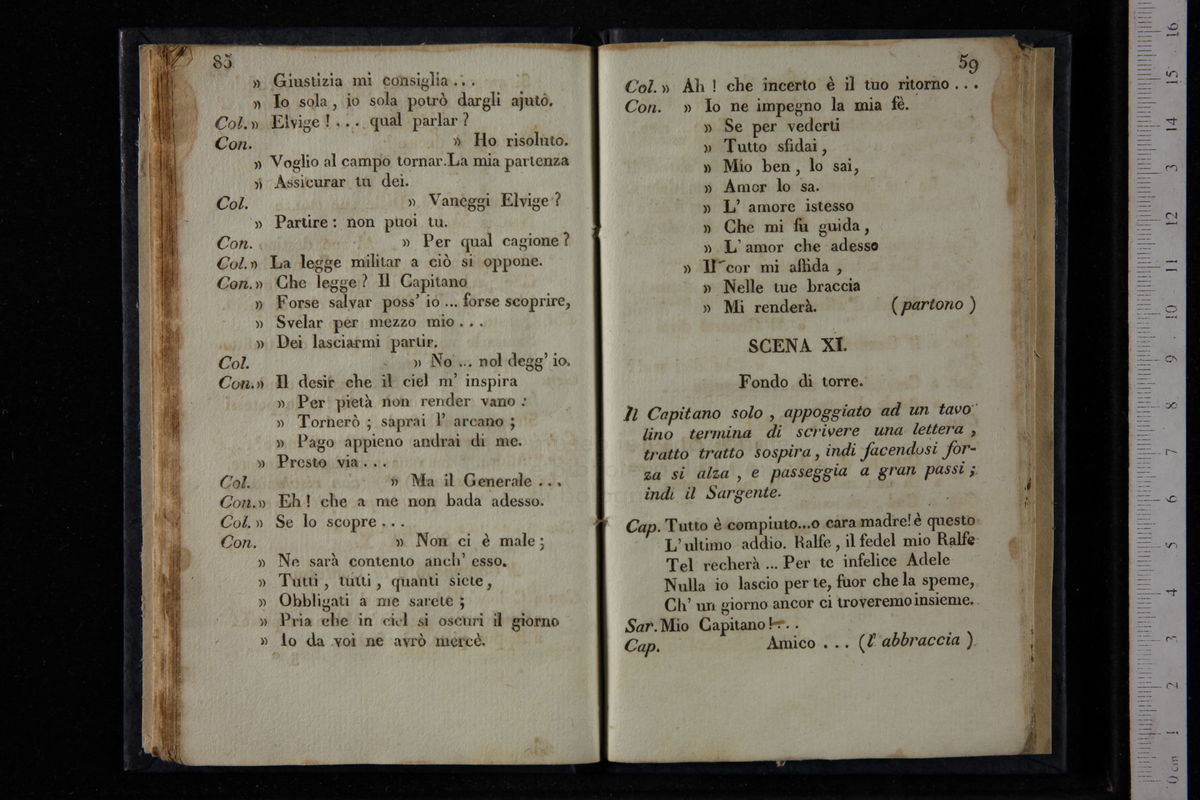 85
» Giustizia mi consiglia . . .
» Io sola, io sola potrò dargli ajutò.
Col. » Elvige ! . . . qual parlar ?
Con. » Ho risoluto.
» Voglio al campo tornar. La mia partenza
» Assicurar tu dei.
Col. » Vaneggi Elvige ?
» Partire : non puoi tu.
Con. » Per qual cagione ?
Col. » La legge militar a ciò si oppone.
Con. » Che legge ? Il Capitano
» Forse salvar poss' io ... forse scoprire,
» Svelar per mezzo mio . . .
» Dei lasciarmi partir.
Col. » No ... nol degg' io.
Con. » Il desir che il ciel m' inspira
» Per pietà non render vano :
» Tornerò ; saprai l' arcano ;
» Pago appieno andrai di me.
» Presto via . . .
Col. » Ma il Generale . . .
Con. » Eh ! che a me non bada adesso.
Col. » Se lo scopre . . .
Con. » Non ci è male ;
» Ne sarà contento anch' esso.
» Tutti, tutti, quanti siete,
» Obbligati a me sarete ;
» Pria che in ciel si oscuri il giorno
» Io da voi ne avrò mercè.
59
Col. » Ah ! che incerto è il tuo ritorno . . .
Con. » Io ne impegno la mia fè.
» Se per vederti
» Tutto sfidai,
» Mio ben, lo sai,
» Amor lo sa.
» L' amore istesso
» Che mi fu guida,
» L' amor che adesso
» Il cor mi affida,
» Nelle tue braccia
» Mi renderà. (partono)
SCENA XI.
Fondo di torre.
Il Capitano solo, appoggiato ad un tavo
lino termina di scrivere una lettera,
tratto tratto sospira, indi facendosi for-
za si alza, e passeggia a gran passi ;
indi il Sargente.
Cap. Tutto è compiuto...o cara madre! è questo
L' ultimo addio. Ralfe, il fedel mio Ralfe
Tel recherà ... Per te infelice Adele
Nulla io lascio per te, fuor che la speme,
Ch' un giorno ancor ci troveremo insieme.
Sar. Mio Capitano ! . . .
Cap. Amico . . . (l' abbraccia)
0 cm 1 2 3 4 5 6 7 8 9 10 11 12 13 14 15 16